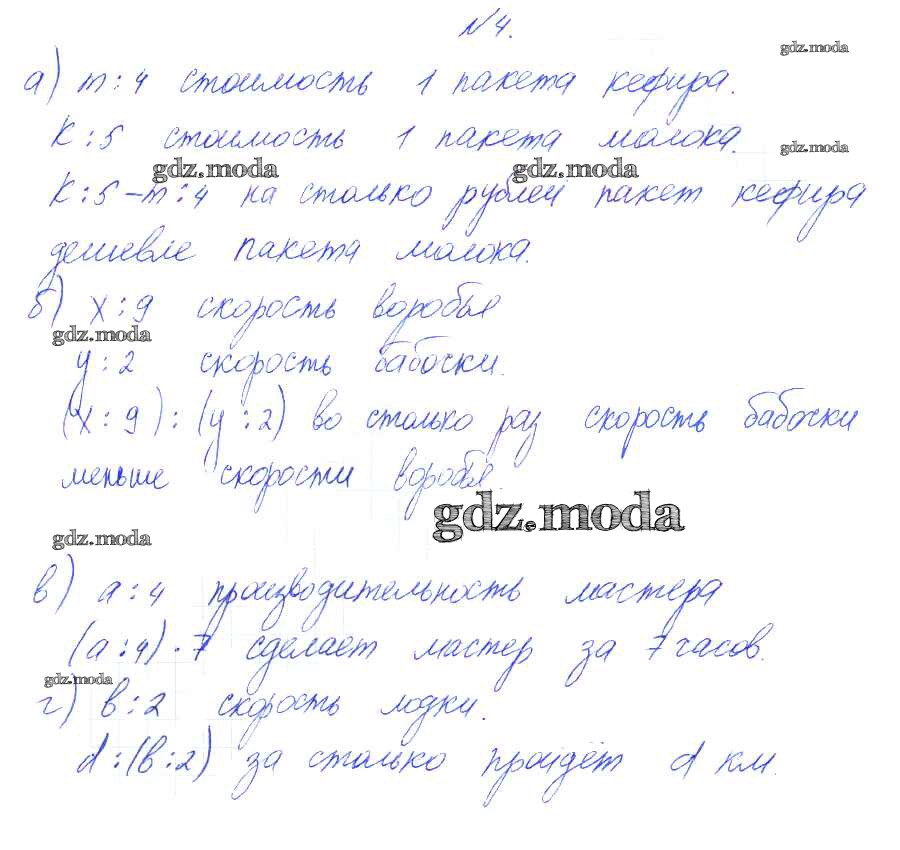 №4.
gdz.moda
а) m:4 стоимость 1 пакета кефира.
k:5 стоимость 1 пакета молока.
gdz.moda
gdz.moda gdz.moda
k:5-m:4 на столько рублей пакет кефира
дешевле пакета молока.
б) x:9 скорость воробья
gdz.moda
y:2 скорость бабочки.
(x:9):(y:2) во столько раз скорость бабочки
меньше скорости воробья.
gdz.moda
gdz.moda
в) a:4 производительность мастера
(a:4)·7 сделает мастер за 7 часов.
gdz.moda
г) b:2 скорость лодки.
d:(b:2) за столько пройдёт d км.